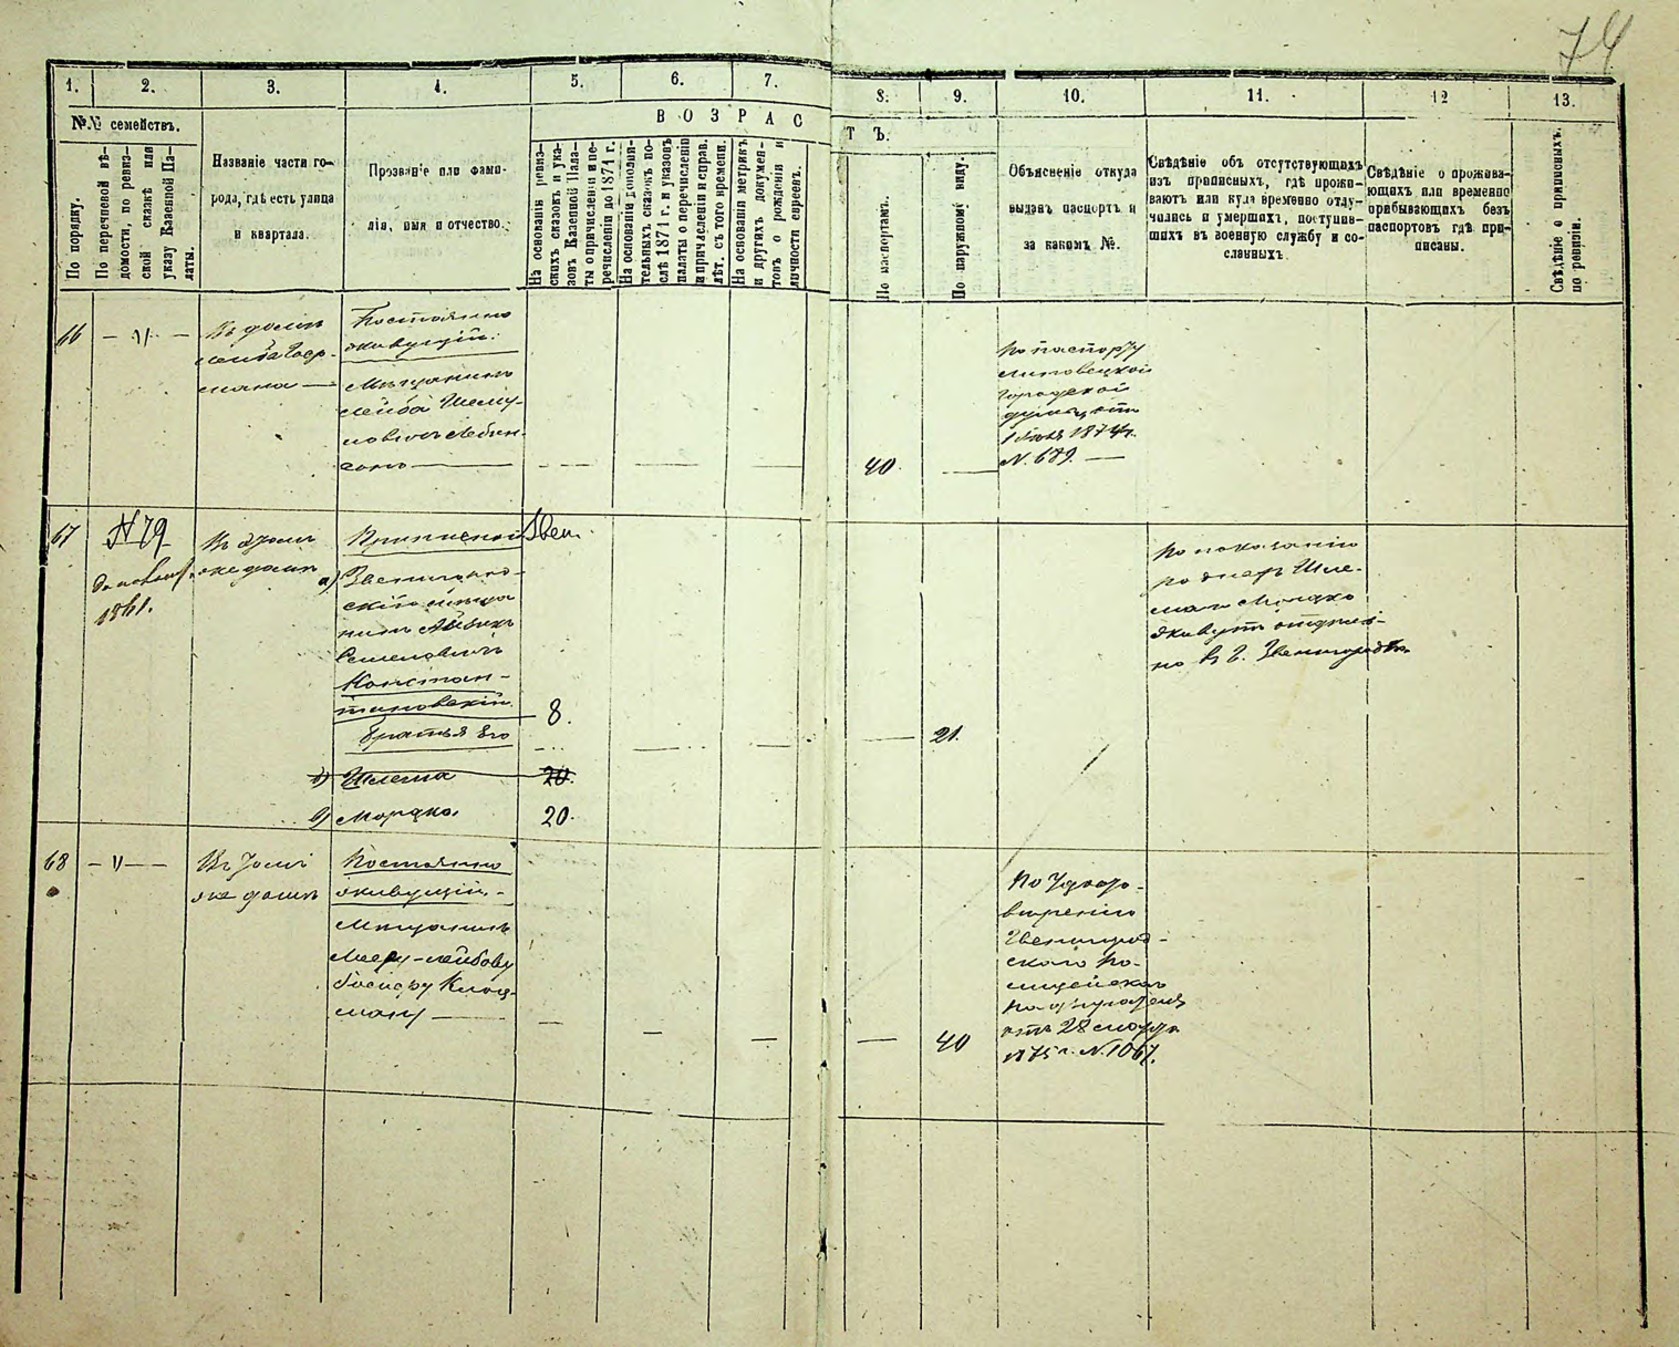 74
1.
2.
3.
4.
5.
6.
7.
8.
9.
10.
11.
12
13.
№№ семействъ.
ВОЗРАС
ТЪ.
По порядку.
По перечневой вѣ-
домости, по ревиз-
ской сказкѣ или
указу Казенной Па-
латы.
Названіе части го-
рода, гдѣ есть улица
и квартала.
Прозваніе или фами-
лія, имя и отчество.
На основаніи ревиз-
скихъ сказокъ и ука-
зовъ Казенной Пала-
ты о причисленіи и пе-
речисленіи до 1871 г.
На основаніи дополни-
тельныхъ сказокъ по-
слѣ 1871 г. и указовъ
палаты о перечисленіи
и причисленіи и справ.
лѣт. съ того времени.
На основаніи метрикъ
и другихъ докумен-
товъ о рожденіи и
личности евреевъ.
По паспортамъ.
По наружному виду.
Объясненіе откуда
выданъ паспортъ и
за какимъ №.
Свѣдѣніе объ отсутствующихъ
изъ приписныхъ, гдѣ прожи-
ваютъ или куда временно отлу-
чились и умершихъ, поступив-
шихъ въ военную службу и со-
сланныхъ.
Свѣдѣніе о прожива-
ющихъ или временно
прибывающихъ безъ
паспортовъ гдѣ при-
писаны.
Свѣдѣніе о приписныхъ
по ревизіи.
66
— " —
Въ домѣ
Лейба
Постоянно
живущій.
Мѣщанинъ
Лейба Шему-
ловичъ Левин-
сонъ
40.
По паспорту
Липовецкой
городской
думы отъ
1874 г.
N. 689.
67
N 79
1861.
Въ томъ
же домѣ
Приписной
Звен.
а) Звенигород-
скій мѣща
нинъ Айзикъ
Семеловичъ
Констан-
тиновскій.
8.
Братья его
21.
Шлема
20.
Мордко.
20.
По показанію
Шле-
ма и Мордко
живутъ отдѣль-
но въ г. Звенигородкѣ.
68
— " —
Въ томъ
же домѣ
Постоянно
живущій.
Мѣщанинъ
Мееръ-Лейбовъ
40
По удосто-
вѣренію
Звенигород-
скаго По-
лицейскаго
отъ 28 марта
1875 г. N. 1067.